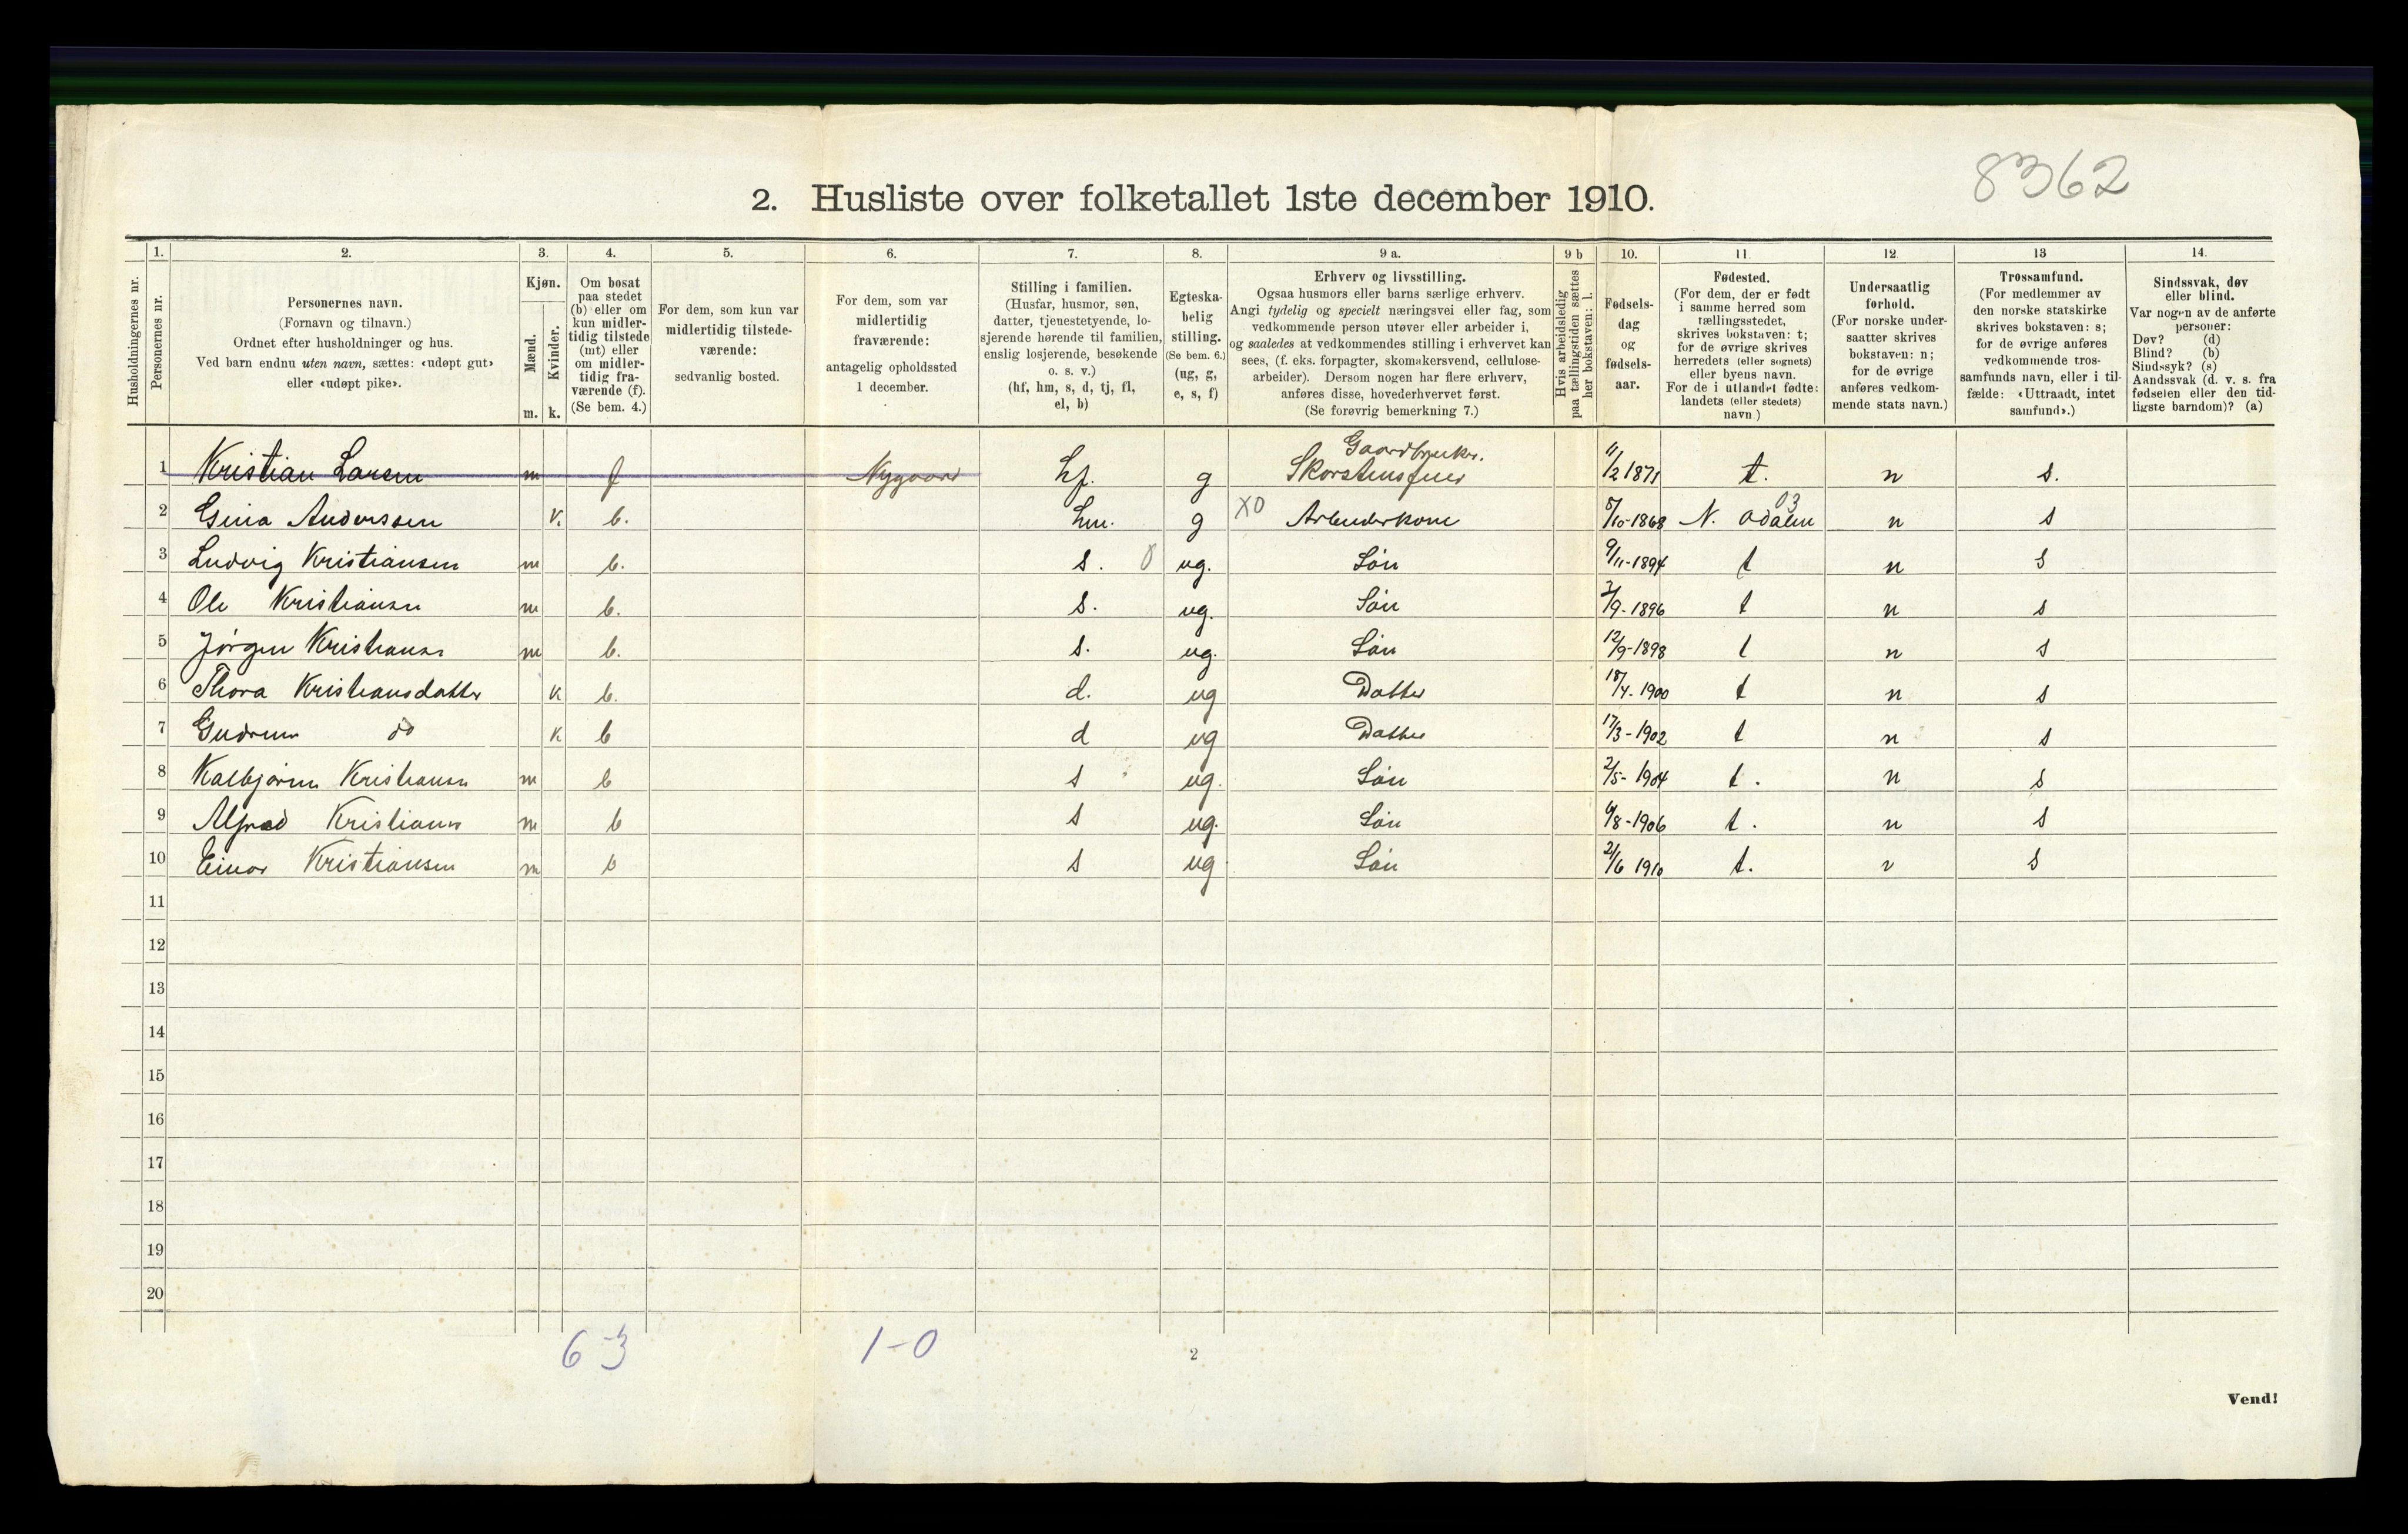 8362
2. Husliste over folketallet 1ste december 1910.
Husholdningernes nr.
1.
Personernes nr.
2.
Personernes navn.
(Fornavn og tilnavn.)
Ordnet efter husholdninger og hus.
Ved barn endnu uten navn, sættes: «udøpt gut»
eller «udøpt pike».
3.
Kjøn.
Mænd.
Kvinder.
m. k.
4.
Om bosat
paa stedet
(b) eller om
kun midler-
tidig tilstede
(mt) eller
om midler-
tidig fra-
værende (f).
(Se bem. 4.)
5.
For dem, som kun var
midlertidig tilstede-
værende:
sedvanlig bosted.
6.
For dem, som var
midlertidig
fraværende:
antagelig opholdssted
1 december.
7.
Stilling i familien.
(Husfar, husmor, søn,
datter, tjenestetyende, lo-
sjerende hørende til familien,
enslig losjerende, besøkende
o. s. v.)
(hf, hm, s, d, tj, fl,
el, b)
8.
Egteska-
belig
stilling.
(Se bem. 6.)
(ug, g,
e, s, f)
9 a.
Erhverv og livsstilling.
Ogsaa husmors eller barns særlige erhverv.
Angi tydelig og specielt næringsvei eller fag, som
vedkommende person utøver eller arbeider i,
og saaledes at vedkommendes stilling i erhvervet kan
sees, (f. eks. forpagter, skomakersvend, cellulose-
arbeider). Dersom nogen har flere erhverv,
anføres disse, hovederhvervet først.
(Se forøvrig bemerkning 7.)
9 b
Hvis arbeidsledig
paa tællingstiden sættes
her bokstaven: l.
10.
Fødsels-
dag
og
fødsels-
aar.
11.
Fødested.
(For dem, der er født
i samme herred som
tællingsstedet,
skrives bokstaven: t;
for de øvrige skrives
herredets (eller sognets)
eller byens navn.
For de i utlandet fødte:
landets (eller stedets)
navn.)
12.
Undersaatlig
forhold.
(For norske under-
saatter skrives
bokstaven: n;
for de øvrige
anføres vedkom-
mende stats navn.)
13
Trossamfund.
(For medlemmer av
den norske statskirke
skrives bokstaven: s;
for de øvrige anføres
vedkommende tros-
samfunds navn, eller i til-
fælde: «Uttraadt, intet
samfund».)
14.
Sindssvak, døv
eller blind.
Var nogen av de anførte
personer:
Døv? (d)
Blind? (b)
Sindssyk? (s)
Aandssvak (d. v. s. fra
fødselen eller den tid-
ligste barndom)? (a)
Gaardbruker.
1 Kristian Larsen m f Nygaard hf. g Skorstensfeier 11/2 1871 t. n s.
2 Gina Anderssen k. b. hm. g X0 Arbeiderkone 8/10-1868 N. Odalen 03 n s
3 Ludvig Kristiansen m b. s. 0 ug. Søn 9/11-1894 t n s
4 Ole Kristiansen m b. s. ug. Søn /9-1896 t n s
5 Jørgen Kristiansn m b. s. ug. Søn 12/9-1898 t n s
6 Thora Kristiansdatter k b. d. ug Datter 18/4-1900 t n s
7 Gudrun do k b d ug Datter 17/3-1902 t n s
8 Kristiansn m b s ug. Søn 2/5-1904 t. n s
9 Alfred Kristiansn m b s ug. Søn 6/8-1906 t. n s
10 Einar Kristiansen m b s ug Søn 2/6 1910 t. n s
11
12
13
14
15
16
17
18
19
20
6-3 1-0
2
Vend!